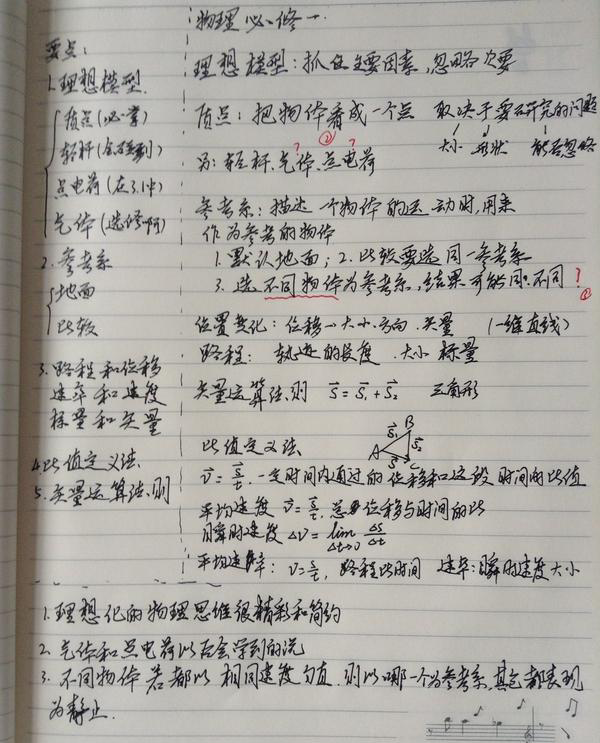 物理必修一
要点:
1.理想模型
质点(必掌)
轻杆(会碰到)
点电荷(在3.1中)
气体(选修啊)
2.参考系
地面
比较
3.路程和位移
速率和速度
标量和矢量
4.比值定义法
5.矢量运算法则
理想模型:抓住主要因素,忽略次要
质点:把物体看成一个点 取决于要研究的问题
大小 形状 能否忽略
为:轻杆.气体.点电荷
? ② ?
参考系:描述一个物体的运动时,用来
作为参考的物体
1.默认地面;2.比较要选同一参考系
3.选不同物体为参考系,结果可能同.不同 ?
位置变化:位移→大小.方向.矢量 (一维直线)
路程:轨迹的长度.大小 标量
矢量运算法则 S⃗=S⃗₁+S⃗₂ 三角形
A B C S⃗₁ S⃗₂ S⃗
比值定义法
v⃗=s⃗/t.一定时间内通过的位移和这段时间的比值
平均速度 v⃗=s⃗/t.总位移与时间的比
瞬时速度 Δv=lim Δt→0 Δs/Δt
平均速率:v=s/t,路程比时间 速率:瞬时速度大小
1.理想化的物理思维很精彩和简约
2.气体和点电荷以后会学到的说
3.不同物体若都以相同速度匀直.则以哪一个为参考系.其它都表现
为静止.